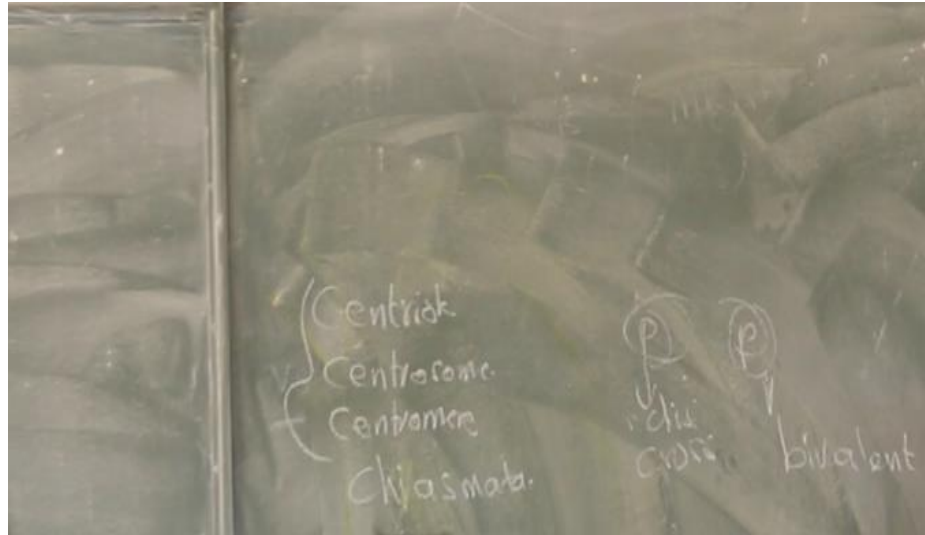 Centriole
Centrosome
Centromere
Chiasmata.
P
P
cross
bivalent